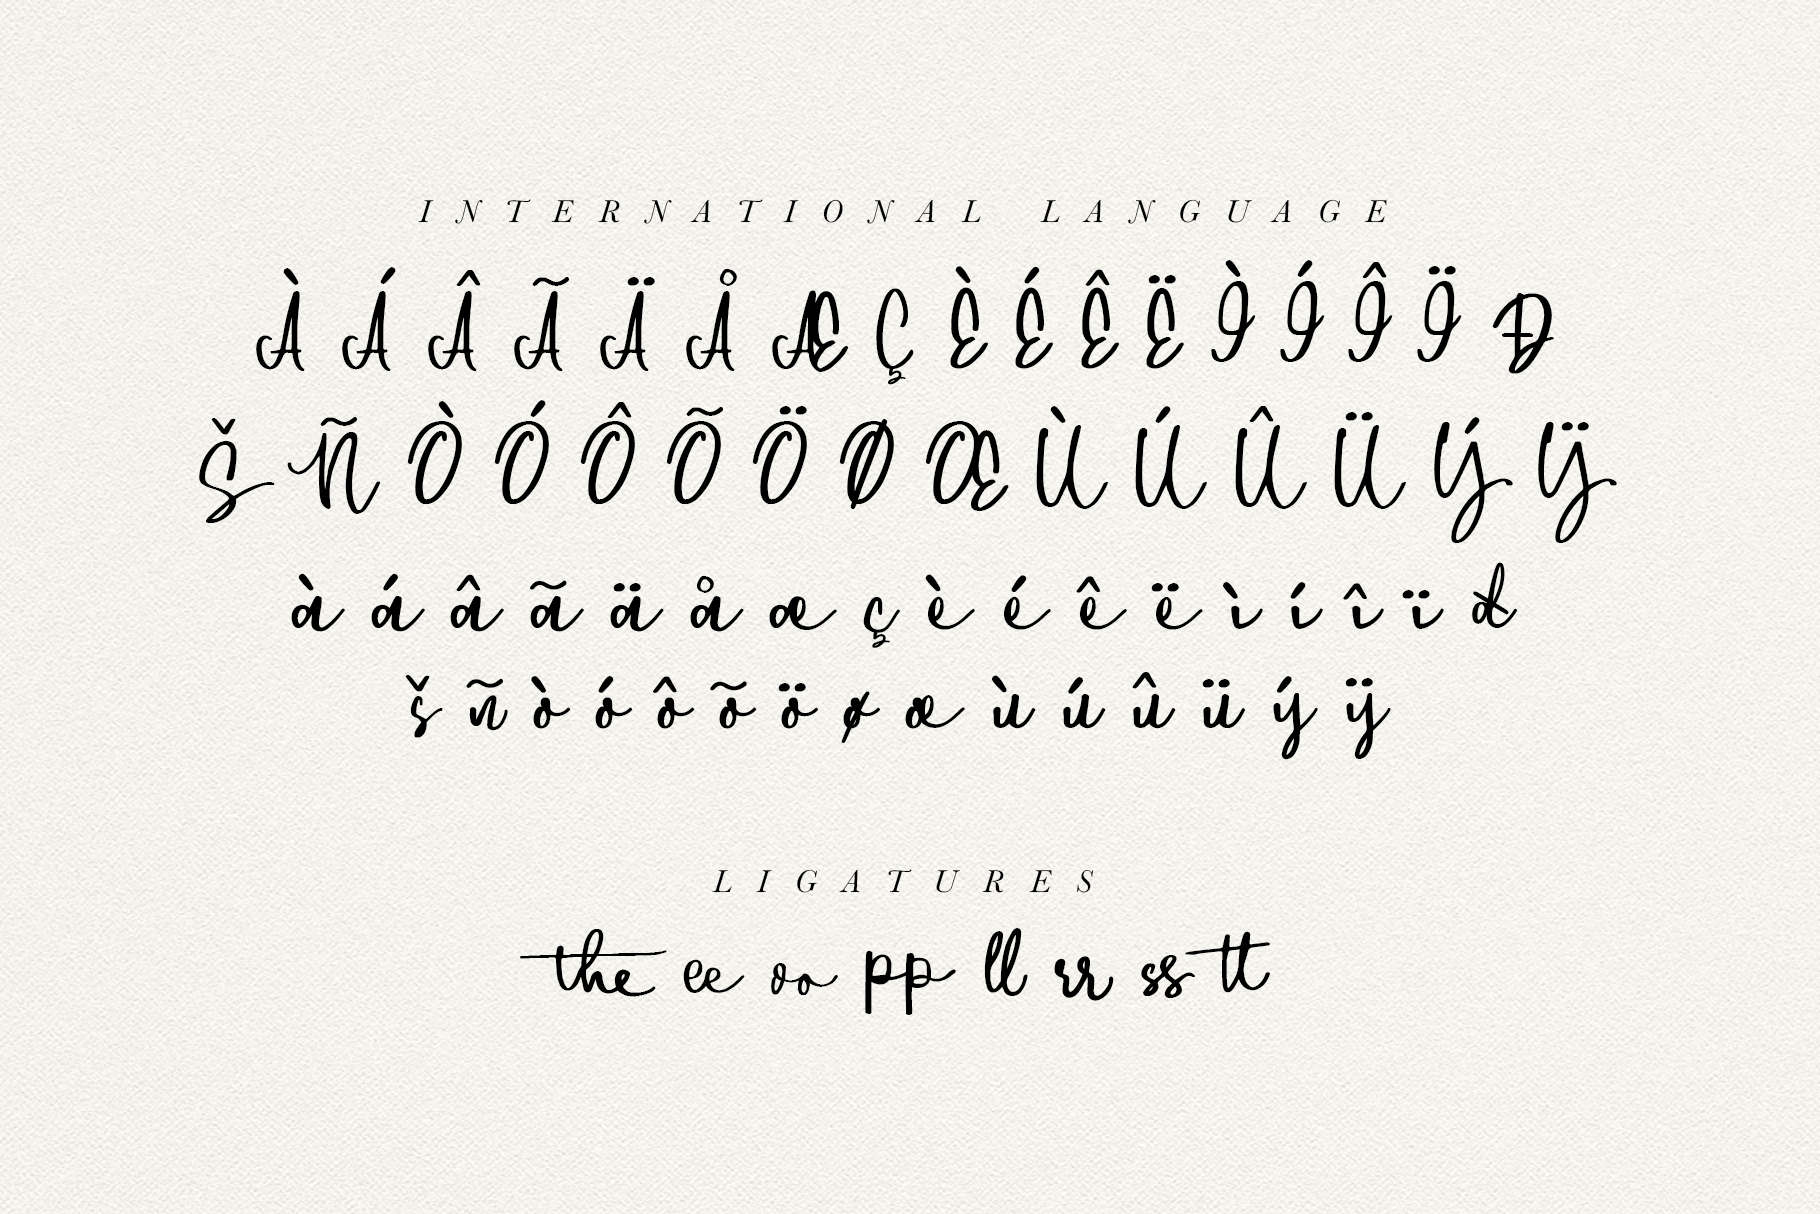 INTERNATIONAL LANGUAGE
À Á Â Ã Ä Å Æ Ç È É Ê Ë Ì Í Î Ï Ð
Š Ñ Ò Ó Ô Õ Ö Ø Œ Ù Ú Û Ü Ý Ÿ
à á â ã ä å æ ç è é ê ë ì í î ï ð
š ñ ò ó ô õ ö ø œ ù ú û ü ý ÿ
LIGATURES
the ee oo pp ll rr ss tt